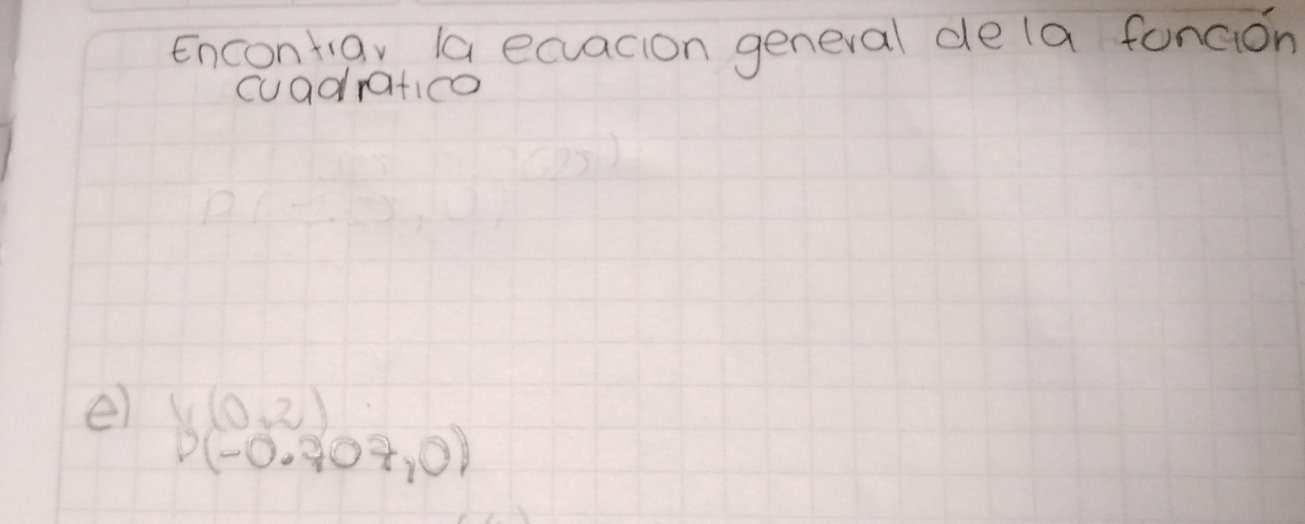 Encontrar la ecuacion general de la función
cuadratico
e) V(0,2)
P(-0.707,0)